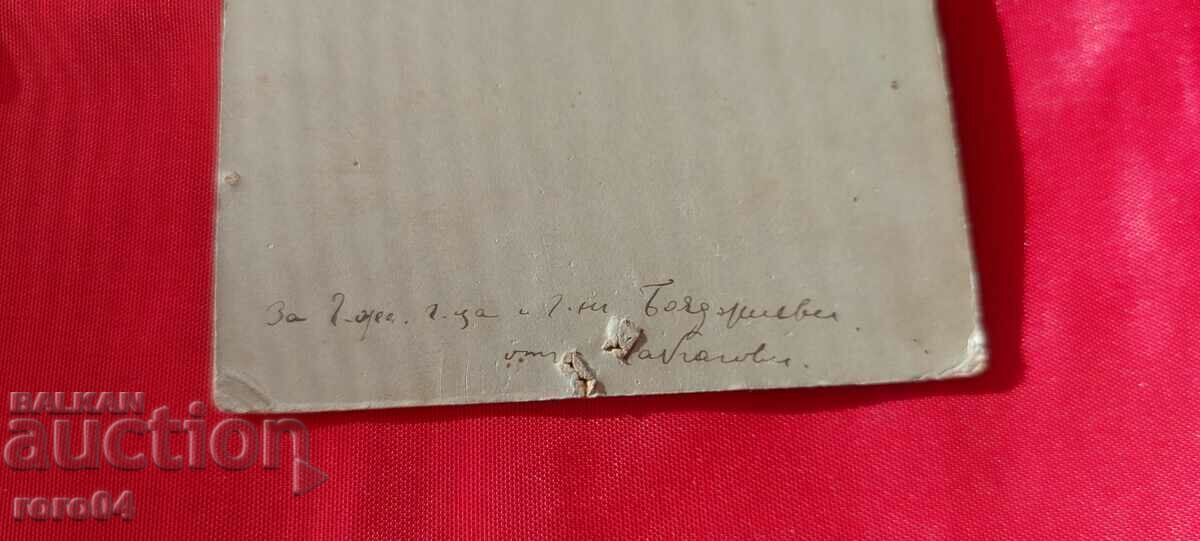 За Г-жа. Г-ца и Г-ни Бояджиеви.
отъ
BALKAN
auction
roro04